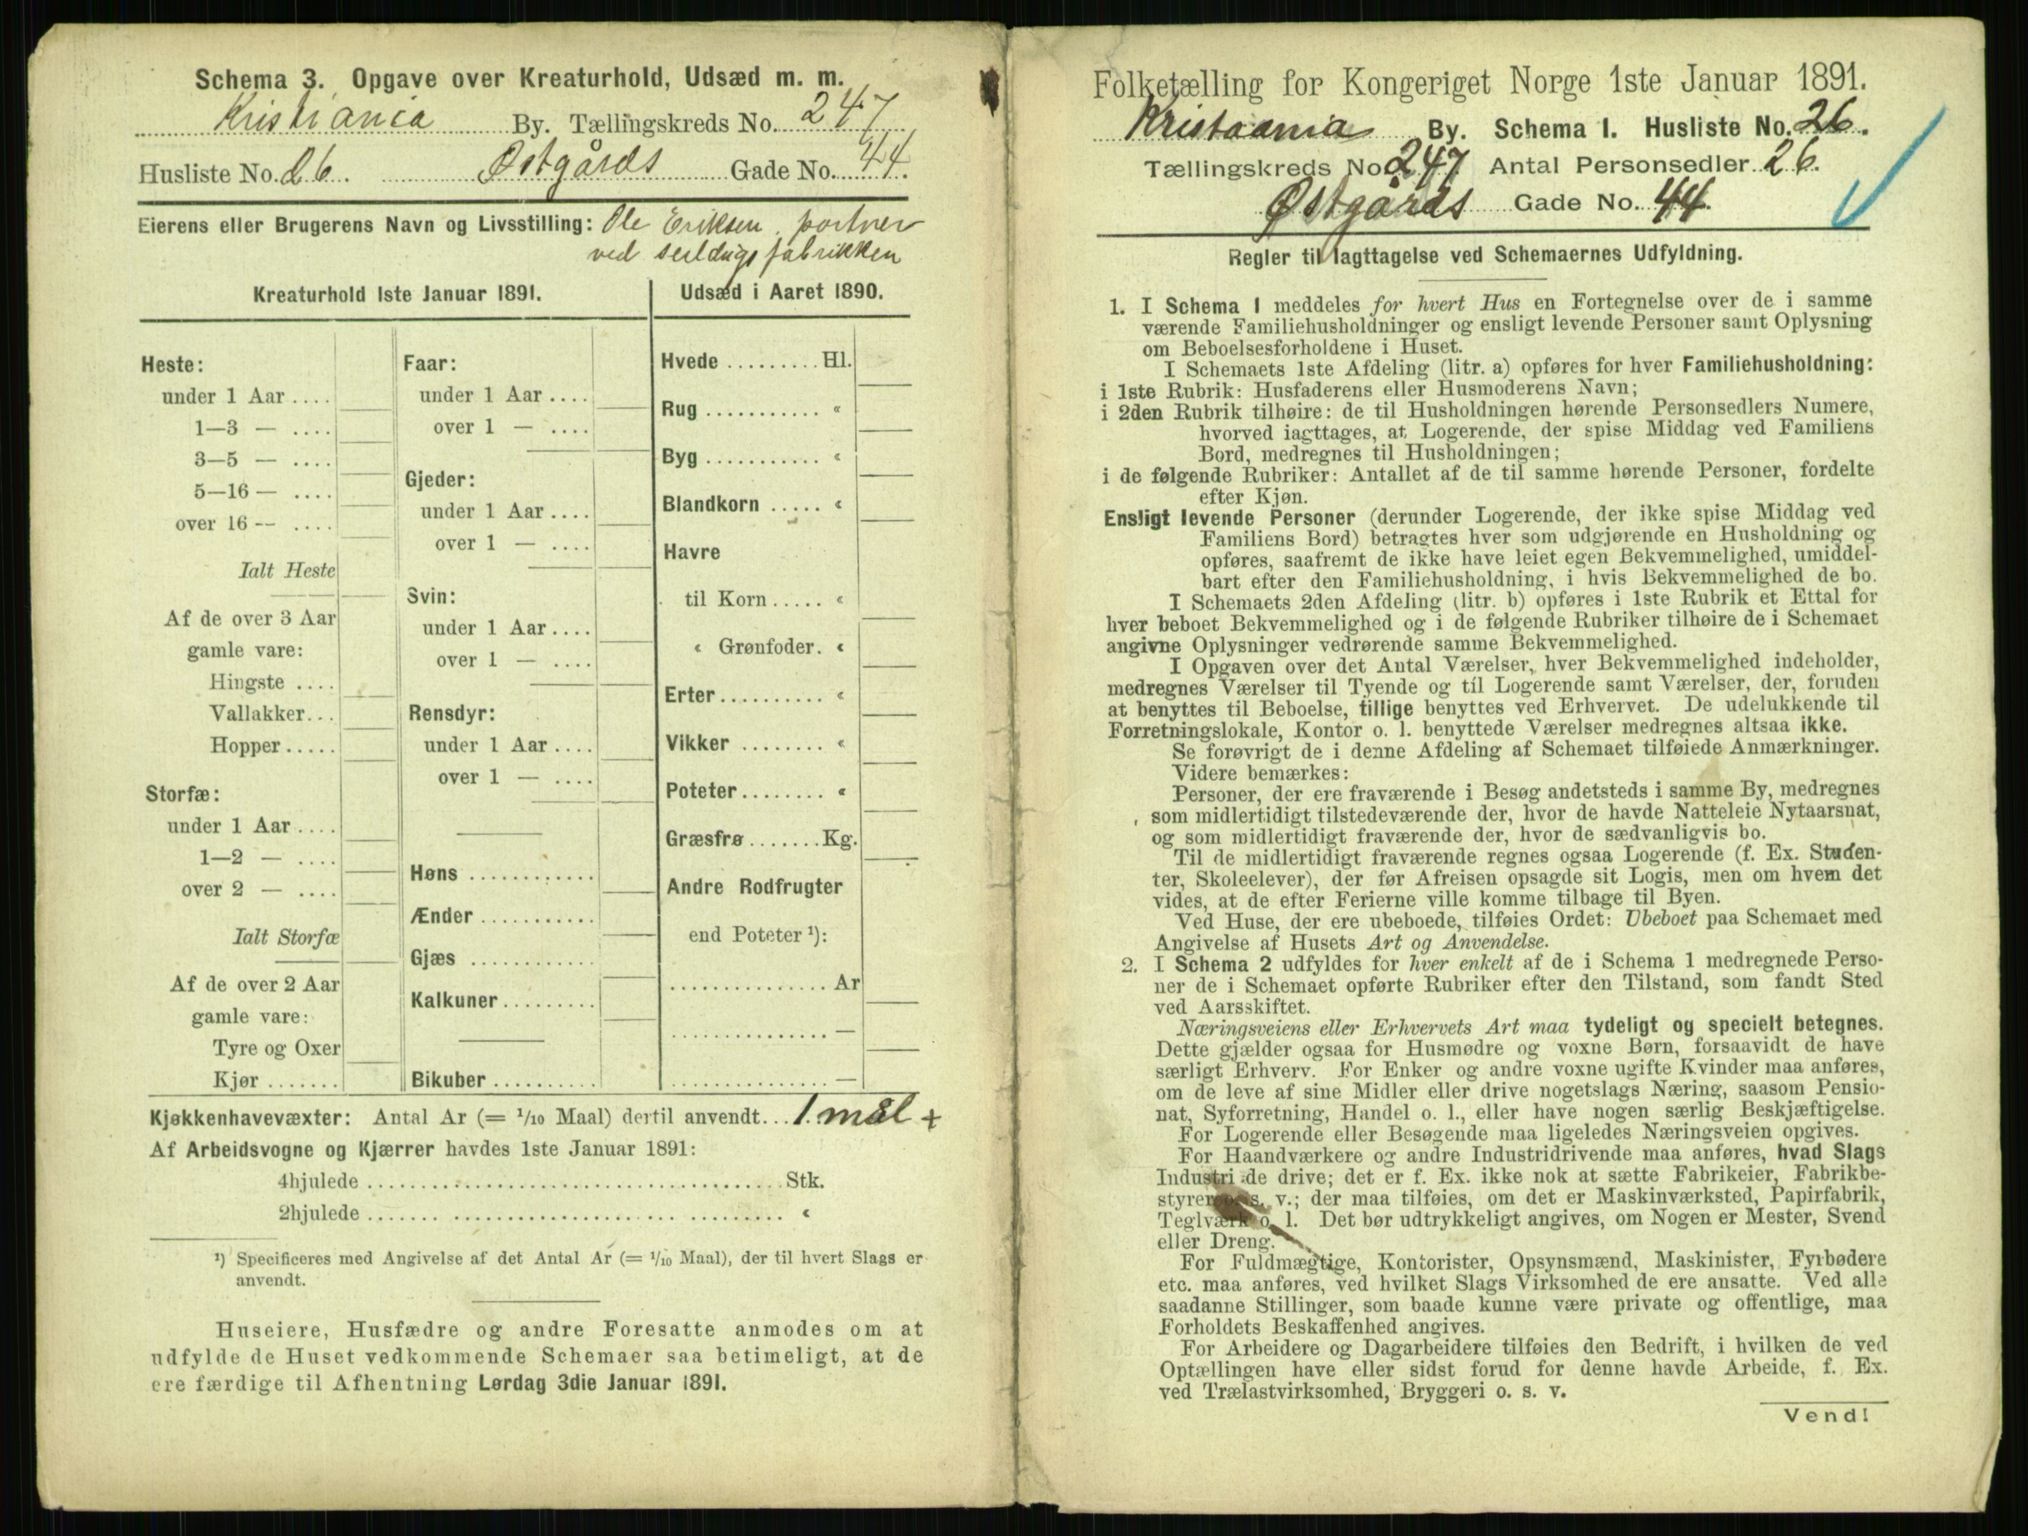 Schema 3. Opgave over Kreaturhold, Udsæd m. m.
Kristiania By. Tællingskreds No. 247
Husliste No. 26. Østgårds Gade No. 44.
Eierens eller Brugerens Navn og Livsstilling: Ole Eriksen, portner
ved seildugsfabrikken
Kreaturhold 1ste Januar 1891.
Heste:
under 1 Aar ....
1—3 — ....
3—5 — ....
5—16 — ....
over 16 — ....
Ialt Heste
Af de over 3 Aar
gamle vare:
Hingste ....
Vallakker...
Hopper .....
Storfæ:
under 1 Aar ....
1—2 — ....
over 2 — ....
Ialt Storfæ
Af de over 2 Aar
gamle vare:
Tyre og Oxer
Kjør .......
Faar:
under 1 Aar ....
over 1 — ....
Gjeder:
under 1 Aar ....
over 1 — ....
Svin:
under 1 Aar ....
over 1 — ....
Rensdyr:
under 1 Aar ....
over 1 — ....
Høns ............
Ænder ...........
Gjæs ............
Kalkuner.........
Bikuber ..........
Udsæd i Aaret 1890.
Hvede ......... Hl.
Rug ........... «
Byg ........... «
Blandkorn ..... «
Havre
til Korn ..... «
« Grønfoder. «
Erter.......... «
Vikker ........ «
Poteter........ «
Græsfrø ....... Kg.
Andre Rodfrugter
end Poteter ¹):
............... Ar
............... —
............... —
Kjøkkenhavevæxter: Antal Ar (= 1/10 Maal) dertil anvendt... 1 mål +
Af Arbeidsvogne og Kjærrer havdes 1ste Januar 1891:
4hjulede ........................................ Stk.
2hjulede ........................................ «
¹) Specificeres med Angivelse af det Antal Ar (= 1/10 Maal), der til hvert Slags er
anvendt.
Huseiere, Husfædre og andre Foresatte anmodes om at
udfylde de Huset vedkommende Schemaer saa betimeligt, at de
ere færdige til Afhentning Lørdag 3die Januar 1891.
Folketælling for Kongeriget Norge 1ste Januar 1891.
Kristiania By. Schema 1. Husliste No. 26.
Tællingskreds No. 247 Antal Personsedler 26.
Østgårds Gade No. 44.
Regler til Iagttagelse ved Schemaernes Udfyldning.
1. I Schema 1 meddeles for hvert Hus en Fortegnelse over de i samme
værende Familiehusholdninger og ensligt levende Personer samt Oplysning
om Beboelsesforholdene i Huset.
I Schemaets 1ste Afdeling (litr. a) opføres for hver Familiehusholdning:
i 1ste Rubrik: Husfaderens eller Husmoderens Navn;
i 2den Rubrik tilhøire: de til Husholdningen hørende Personsedlers Numere,
hvorved iagttages, at Logerende, der spise Middag ved Familiens
Bord, medregnes til Husholdningen;
i de følgende Rubriker: Antallet af de til samme hørende Personer, fordelte
efter Kjøn.
Ensligt levende Personer (derunder Logerende, der ikke spise Middag ved
Familiens Bord) betragtes hver som udgjørende en Husholdning og
opføres, saafremt de ikke have leiet egen Bekvemmelighed, umiddel-
bart efter den Familiehusholdning, i hvis Bekvemmelighed de bo.
I Schemaets 2den Afdeling (litr. b) opføres i 1ste Rubrik et Ettal for
hver beboet Bekvemmelighed og i de følgende Rubriker tilhøire de i Schemaet
angivne Oplysninger vedrørende samme Bekvemmelighed.
I Opgaven over det Antal Værelser, hver Bekvemmelighed indeholder,
medregnes Værelser til Tyende og til Logerende samt Værelser, der, foruden
at benyttes til Beboelse, tillige benyttes ved Erhvervet. De udelukkende til
Forretningslokale, Kontor o. l. benyttede Værelser medregnes altsaa ikke.
Se forøvrigt de i denne Afdeling af Schemaet tilføiede Anmærkninger.
Videre bemærkes:
Personer, der ere fraværende i Besøg andetsteds i samme By, medregnes
som midlertidigt tilstedeværende der, hvor de havde Natteleie Nytaarsnat,
og som midlertidigt fraværende der, hvor de sædvanligvis bo.
Til de midlertidigt fraværende regnes ogsaa Logerende (f. Ex. Studen-
ter, Skoleelever), der før Afreisen opsagde sit Logis, men om hvem det
vides, at de efter Ferierne ville komme tilbage til Byen.
Ved Huse, der ere ubeboede, tilføies Ordet: Ubeboet paa Schemaet med
Angivelse af Husets Art og Anvendelse.
2. I Schema 2 udfyldes for hver enkelt af de i Schema 1 medregnede Perso-
ner de i Schemaet opførte Rubriker efter den Tilstand, som fandt Sted
ved Aarsskiftet.
Næringsveiens eller Erhvervets Art maa tydeligt og specielt betegnes.
Dette gjælder ogsaa for Husmødre og voxne Børn, forsaavidt de have
særligt Erhverv. For Enker og andre voxne ugifte Kvinder maa anføres,
om de leve af sine Midler eller drive nogetslags Næring, saasom Pensio-
nat, Syforretning, Handel o. l., eller have nogen særlig Beskjæftigelse.
For Logerende eller Besøgende maa ligeledes Næringsveien opgives.
For Haandværkere og andre Industridrivende maa anføres, hvad Slags
Industri de drive; det er f. Ex. ikke nok at sætte Fabrikeier, Fabrikbe-
styrer o. s. v.; der maa tilføies, om det er Maskinværksted, Papirfabrik,
Teglværk o. l. Det bør udtrykkeligt angives, om Nogen er Mester, Svend
eller Dreng.
For Fuldmægtige, Kontorister, Opsynsmænd, Maskinister, Fyrbødere
etc. maa anføres, ved hvilket Slags Virksomhed de ere ansatte. Ved alle
saadanne Stillinger, som baade kunne være private og offentlige, maa
Forholdets Beskaffenhed angives.
For Arbeidere og Dagarbeidere tilføies den Bedrift, i hvilken de ved
Optællingen have eller sidst forud for denne havde Arbeide, f. Ex.
ved Trælastvirksomhed, Bryggeri o. s. v.
Vend!